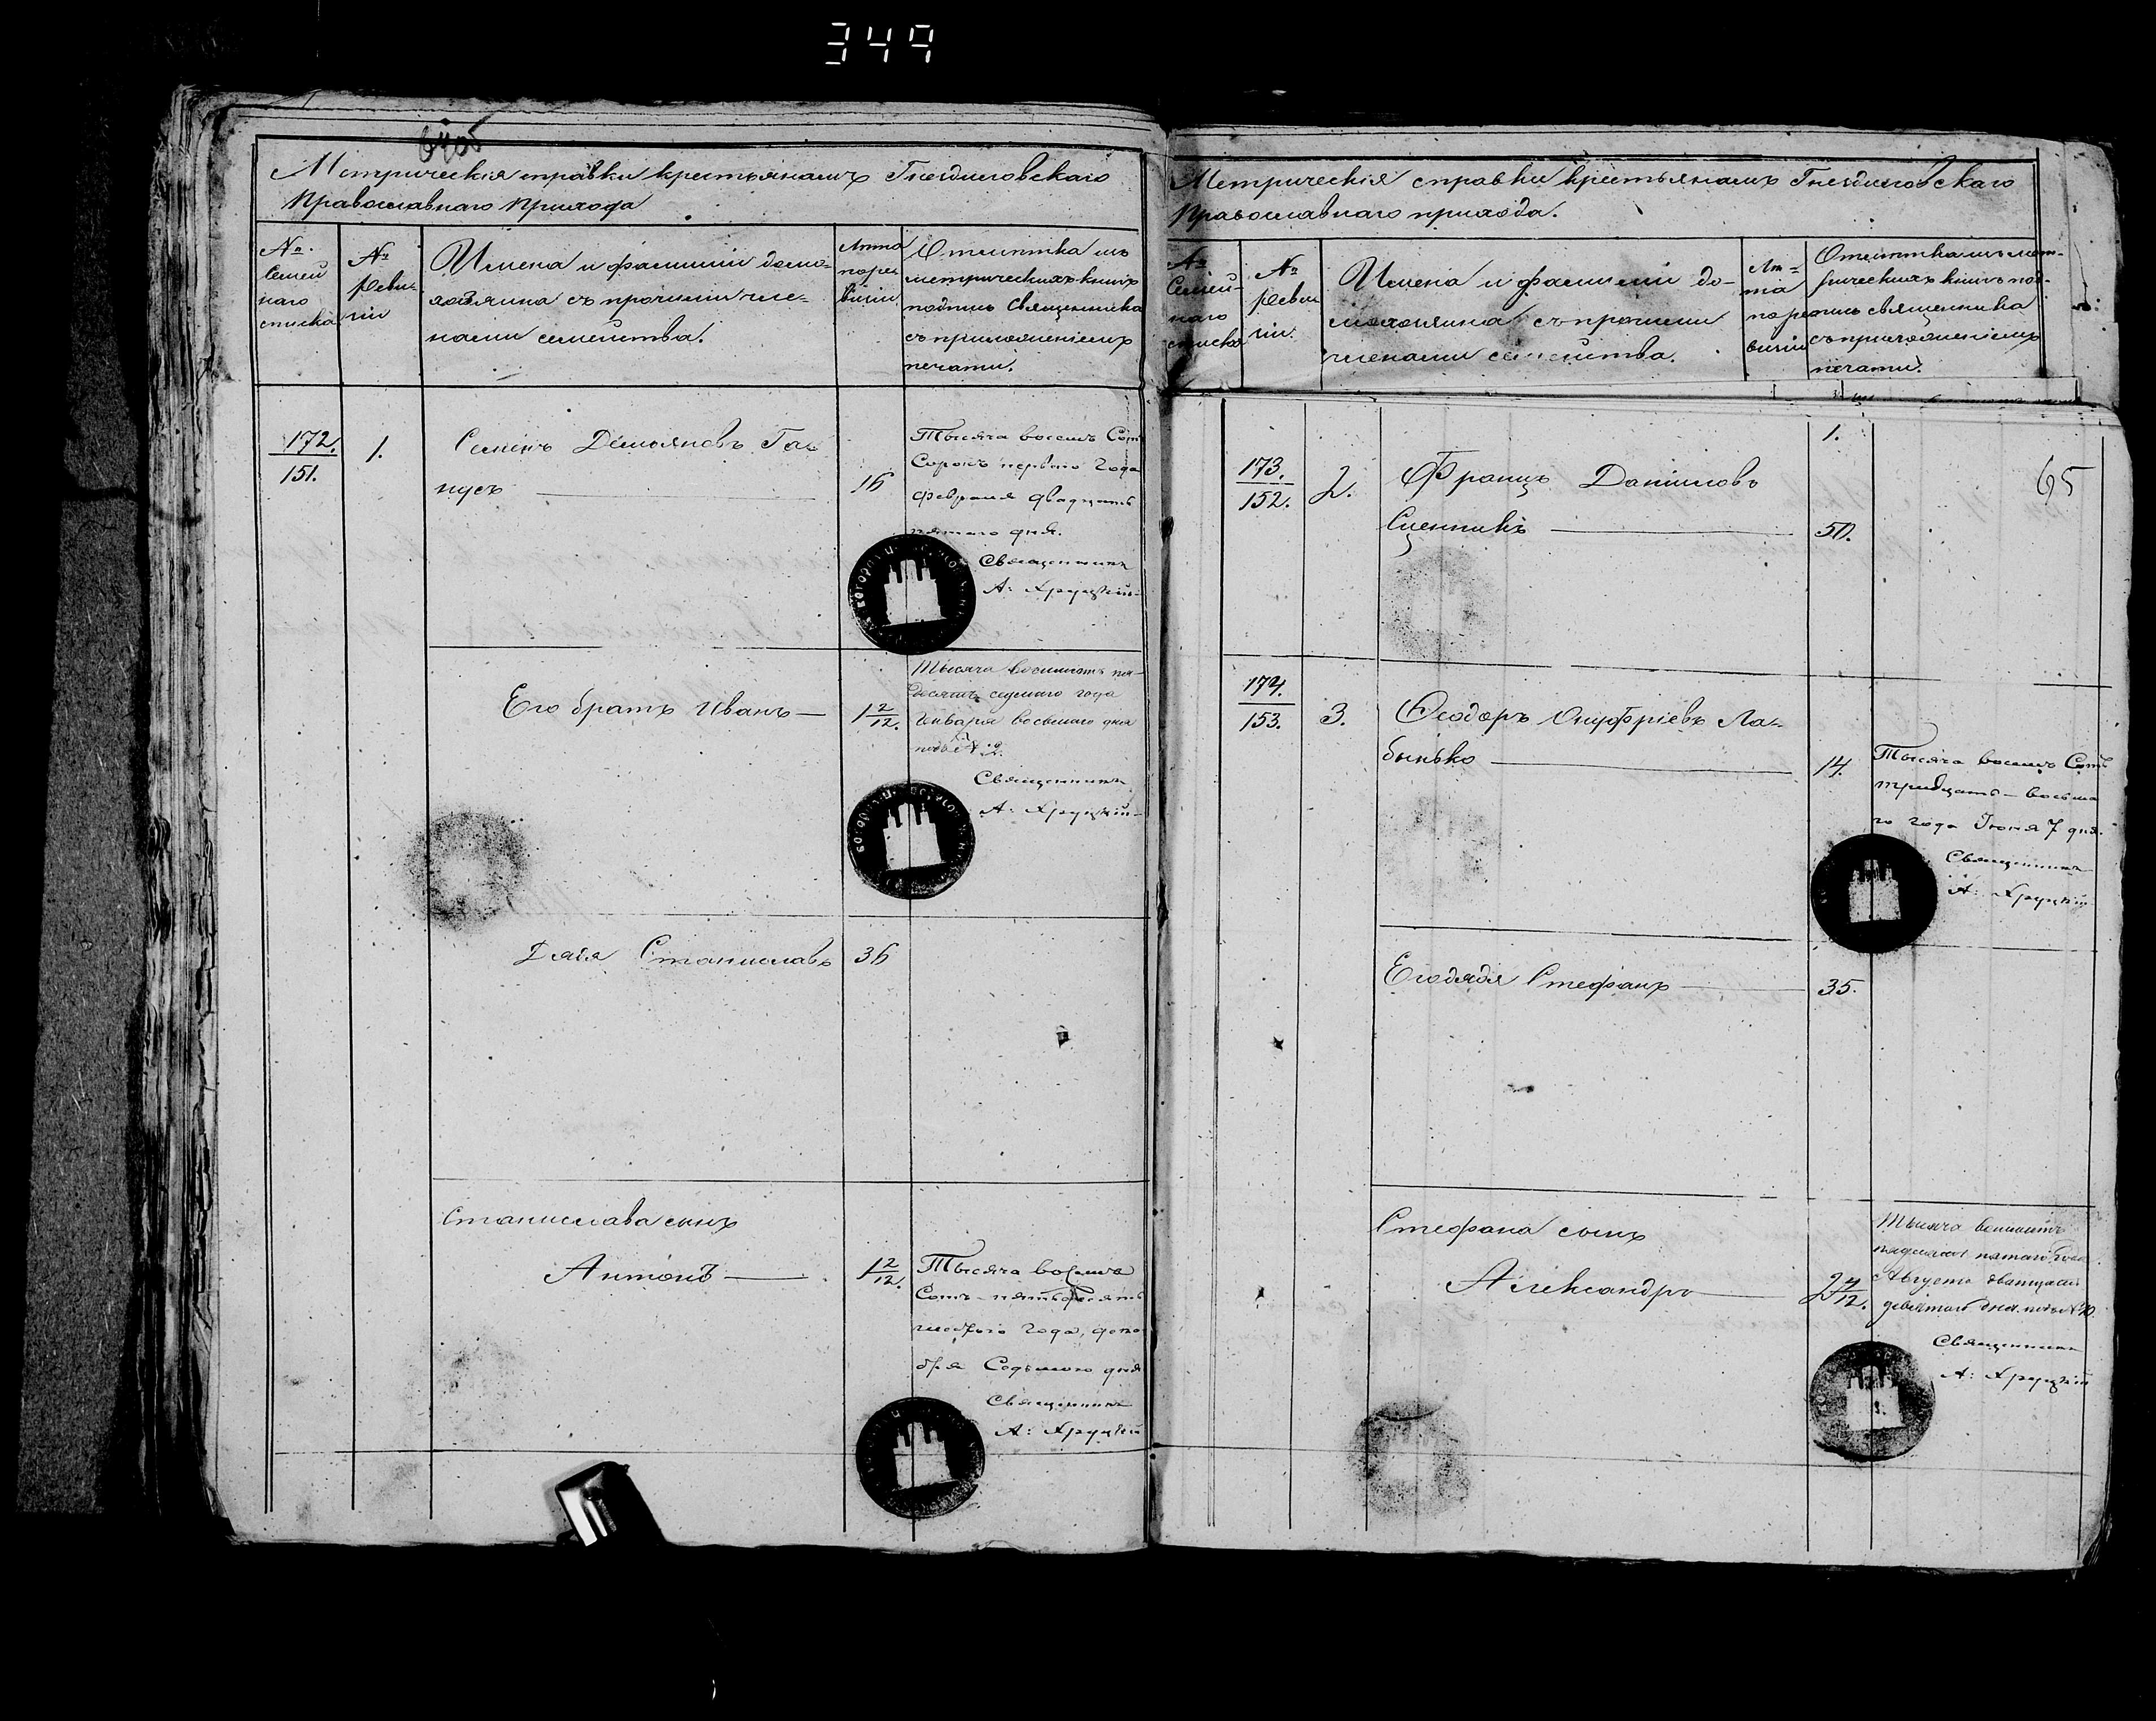 349
64об
Метрическія справки крестьянамъ Гнездиловскаго
Православнаго Прихода
№
Семей
наго
списка
№
реви-
зіи
Имена и фамиліи домо-
хозяина съ прочими чле-
нами семейства.
Лета
по ре
визіи
Отметка изъ
метрическихъ книгъ
подпись Священника
съ приложеніемъ
печати.
172.
151.
1.
Семенъ Демьяновъ Га-
нусъ
16
Тысяча восемь Сотъ
Сорокъ перваго Года
февраля двадцать
пятаго дня.
Священникъ
А: Хруцкій
Его братъ Иванъ
1 2/12.
Тысяча восемьсотъ пя-
десятъ седмаго года
Января восьмаго дня
подъ № 2.
Священникъ
А: Хруцкій
Дядя Станиславъ
36
Станислава сынъ
Антонъ
1 2/12.
Тысяча восемь
Сотъ пятьдесятъ
шестого Года, дека
бря Седьмого дня
Священникъ
А: Хруцкій
Метрическія справки крестьянамъ Гнездиловскаго
Православнаго прихода.
№
Семей-
наго
списка
№
ревизіи.
Имена и фамиліи до-
мохозяина съ прочими
членами семейства.
Ле-
та
по ре
визіи
Отметка изъ мет-
рическихъ книгъ под-
пись священника
съ приложеніемъ
печати.
1.
65
173.
152.
2.
Францъ Даниловъ
Сценникъ
50.
174.
153.
3.
Ѳеодоръ Онуфріевъ Ла-
бынько
14.
Тысяча восемь Сотъ
тридцать восьма
го года Іюня 7 дня.
Священникъ
А: Хруцкій
Его дядя Стефанъ
35.
Стефана сынъ
Александръ
2 4/12.
Тысяча восемьсотъ
пядесятъ пятаго Года
Августа дватцать
девятаго дня. подъ № 40
Священникъ
А: Хруцкій